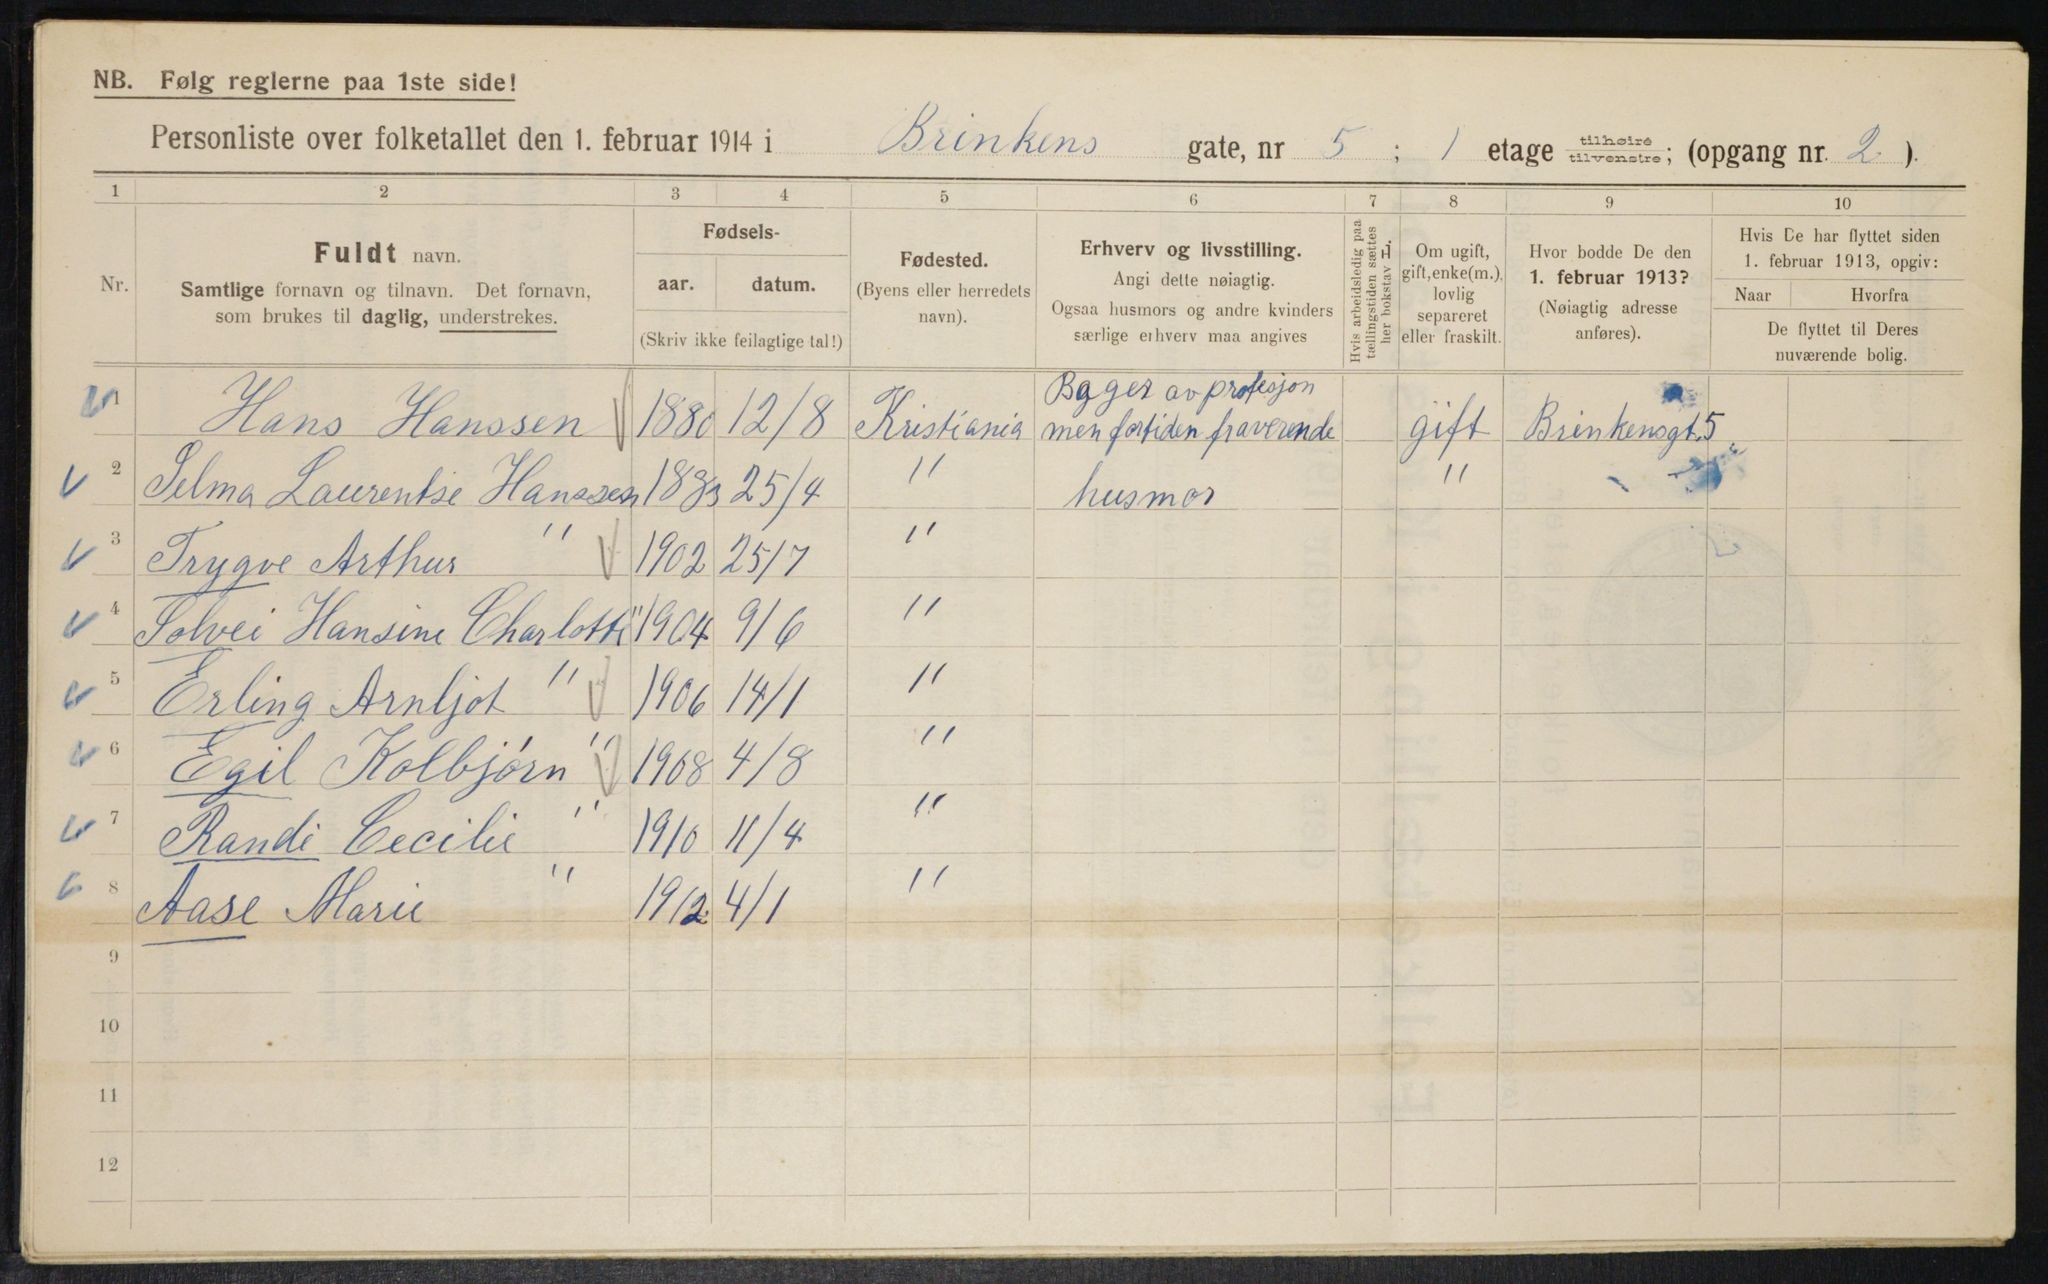 NB. Følg reglerne paa 1ste side!
Personliste over folketallet den 1. februar 1914 i Brinkens gate, nr 5 ; 1 etage tilhøire tilvenstre; (opgang nr. 2 ).
1 2 3 4 5 6 7 8 9 10
Nr.
Fuldt navn.
Samtlige fornavn og tilnavn. Det fornavn,
som brukes til daglig, understrekes.
Fødsels-
aar. datum.
(Skriv ikke feilagtige tal!)
Fødested.
(Byens eller herredets
navn).
Erhverv og livsstilling.
Angi dette nøiagtig.
Ogsaa husmors og andre kvinders
særlige erhverv maa angives
Hvis arbeidsledig paa
tællingstiden sættes
her bokstav L.
Om ugift,
gift, enke(m.),
lovlig
separeret
eller fraskilt.
Hvor bodde De den
1. februar 1913?
(Nøiagtig adresse
anføres).
Hvis De har flyttet siden
1. februar 1913, opgiv:
Naar Hvorfra
De flyttet til Deres
nuværende bolig.
1 Hans Hanssen 1880 12/8 Kristiania Bager av profesjon men fortiden fraverende gift Brinkensgt. 5
2 Selma Laurentse Hanssen 1883 25/4 " husmor "
3 Trygve Arthur " 1902 25/7 "
4 Solvei Hansine Charlotte " 1904 9/6 "
5 Erling Arnljot " 1906 14/1 "
6 Egil Kolbjørn " 1908 4/8 "
7 Randi Cecilie " 1910 11/4 "
8 Aase Marie " 1912 4/1 "
9
10
11
12